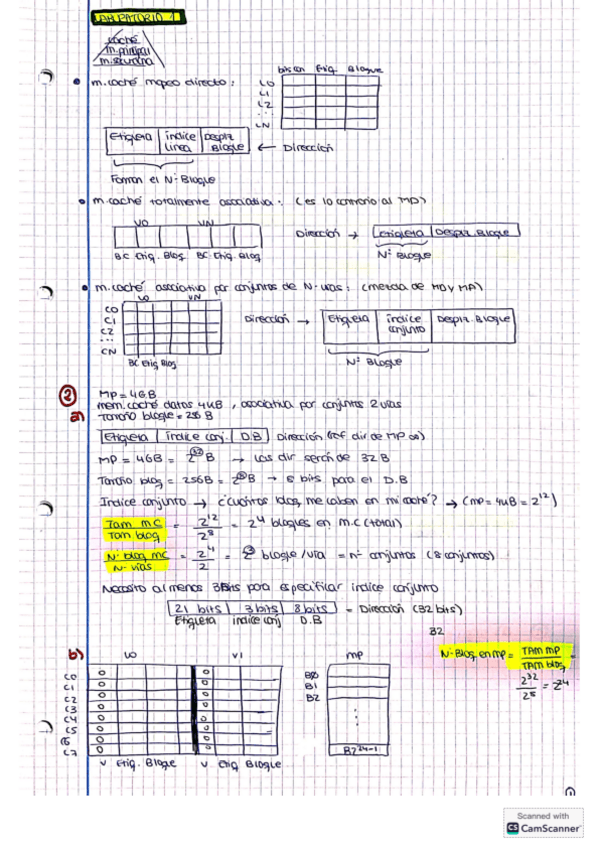 LABORATORIO 1
caché
m.principal
m.secundaria
m.caché mapeo directo:
bits con Etiq. Bloque
L0
L1
L2
...
LN
Etiqueta | índice línea | Despz. Bloque ← Dirección
Forman el Nº Bloque
m.caché totalmente asociativa: (es lo contrario al MD)
V0 VN
BC Etiq. Bloq BC Etiq. Bloq
Dirección → Etiqueta | Despz. Bloque
Nº Bloque
m.caché asociativa por conjuntos de N-vías: (mezcla de MD y MA)
V0 VN
C0
C1
C2
...
CN
BC Etiq Bloq
Dirección → Etiqueta | índice conjunto | Despz. Bloque
Nº Bloque
2 MP = 4GB
mem. caché datos 4KB, asociativa por conjuntos 2 vías
a) Tamaño bloque = 256 B
Etiqueta | índice conj. | D.B Dirección (ref dir de MP ∞)
MP = 4GB = 2^32 B → Las dir serán de 32 B
Tamaño bloq = 256B = 2^8 B → 8 bits para el D.B
Indice conjunto → ¿cuántos bloq. me caben en mi caché? → (mp = 4KB = 2^12)
Tam mc / Tam bloq = 2^12 / 2^8 = 2^4 bloques en m.c (total)
Nº bloq mc / Nº vías = 2^4 / 2 = 2^3 bloque/vía = nº conjuntos (8 conjuntos)
Necesito al menos 3 bits para especificar indice conjunto
21 bits | 3 bits | 8 bits = Dirección (32 bits)
Etiqueta indice conj D.B
32
b) V0 V1 MP
Nº Bloq. en mp = TAM MP / TAM bloq =
2^32 / 2^8 = 2^24
C0 0 0
C1 0 0
C2 0 0
C3 0 0
C4 0 0
C5 0 0
C6 0 0
C7 0 0
V Etiq. Bloque V Etiq Bloque
B0
B1
B2
B2^24-1
1
Scanned with
CS CamScanner